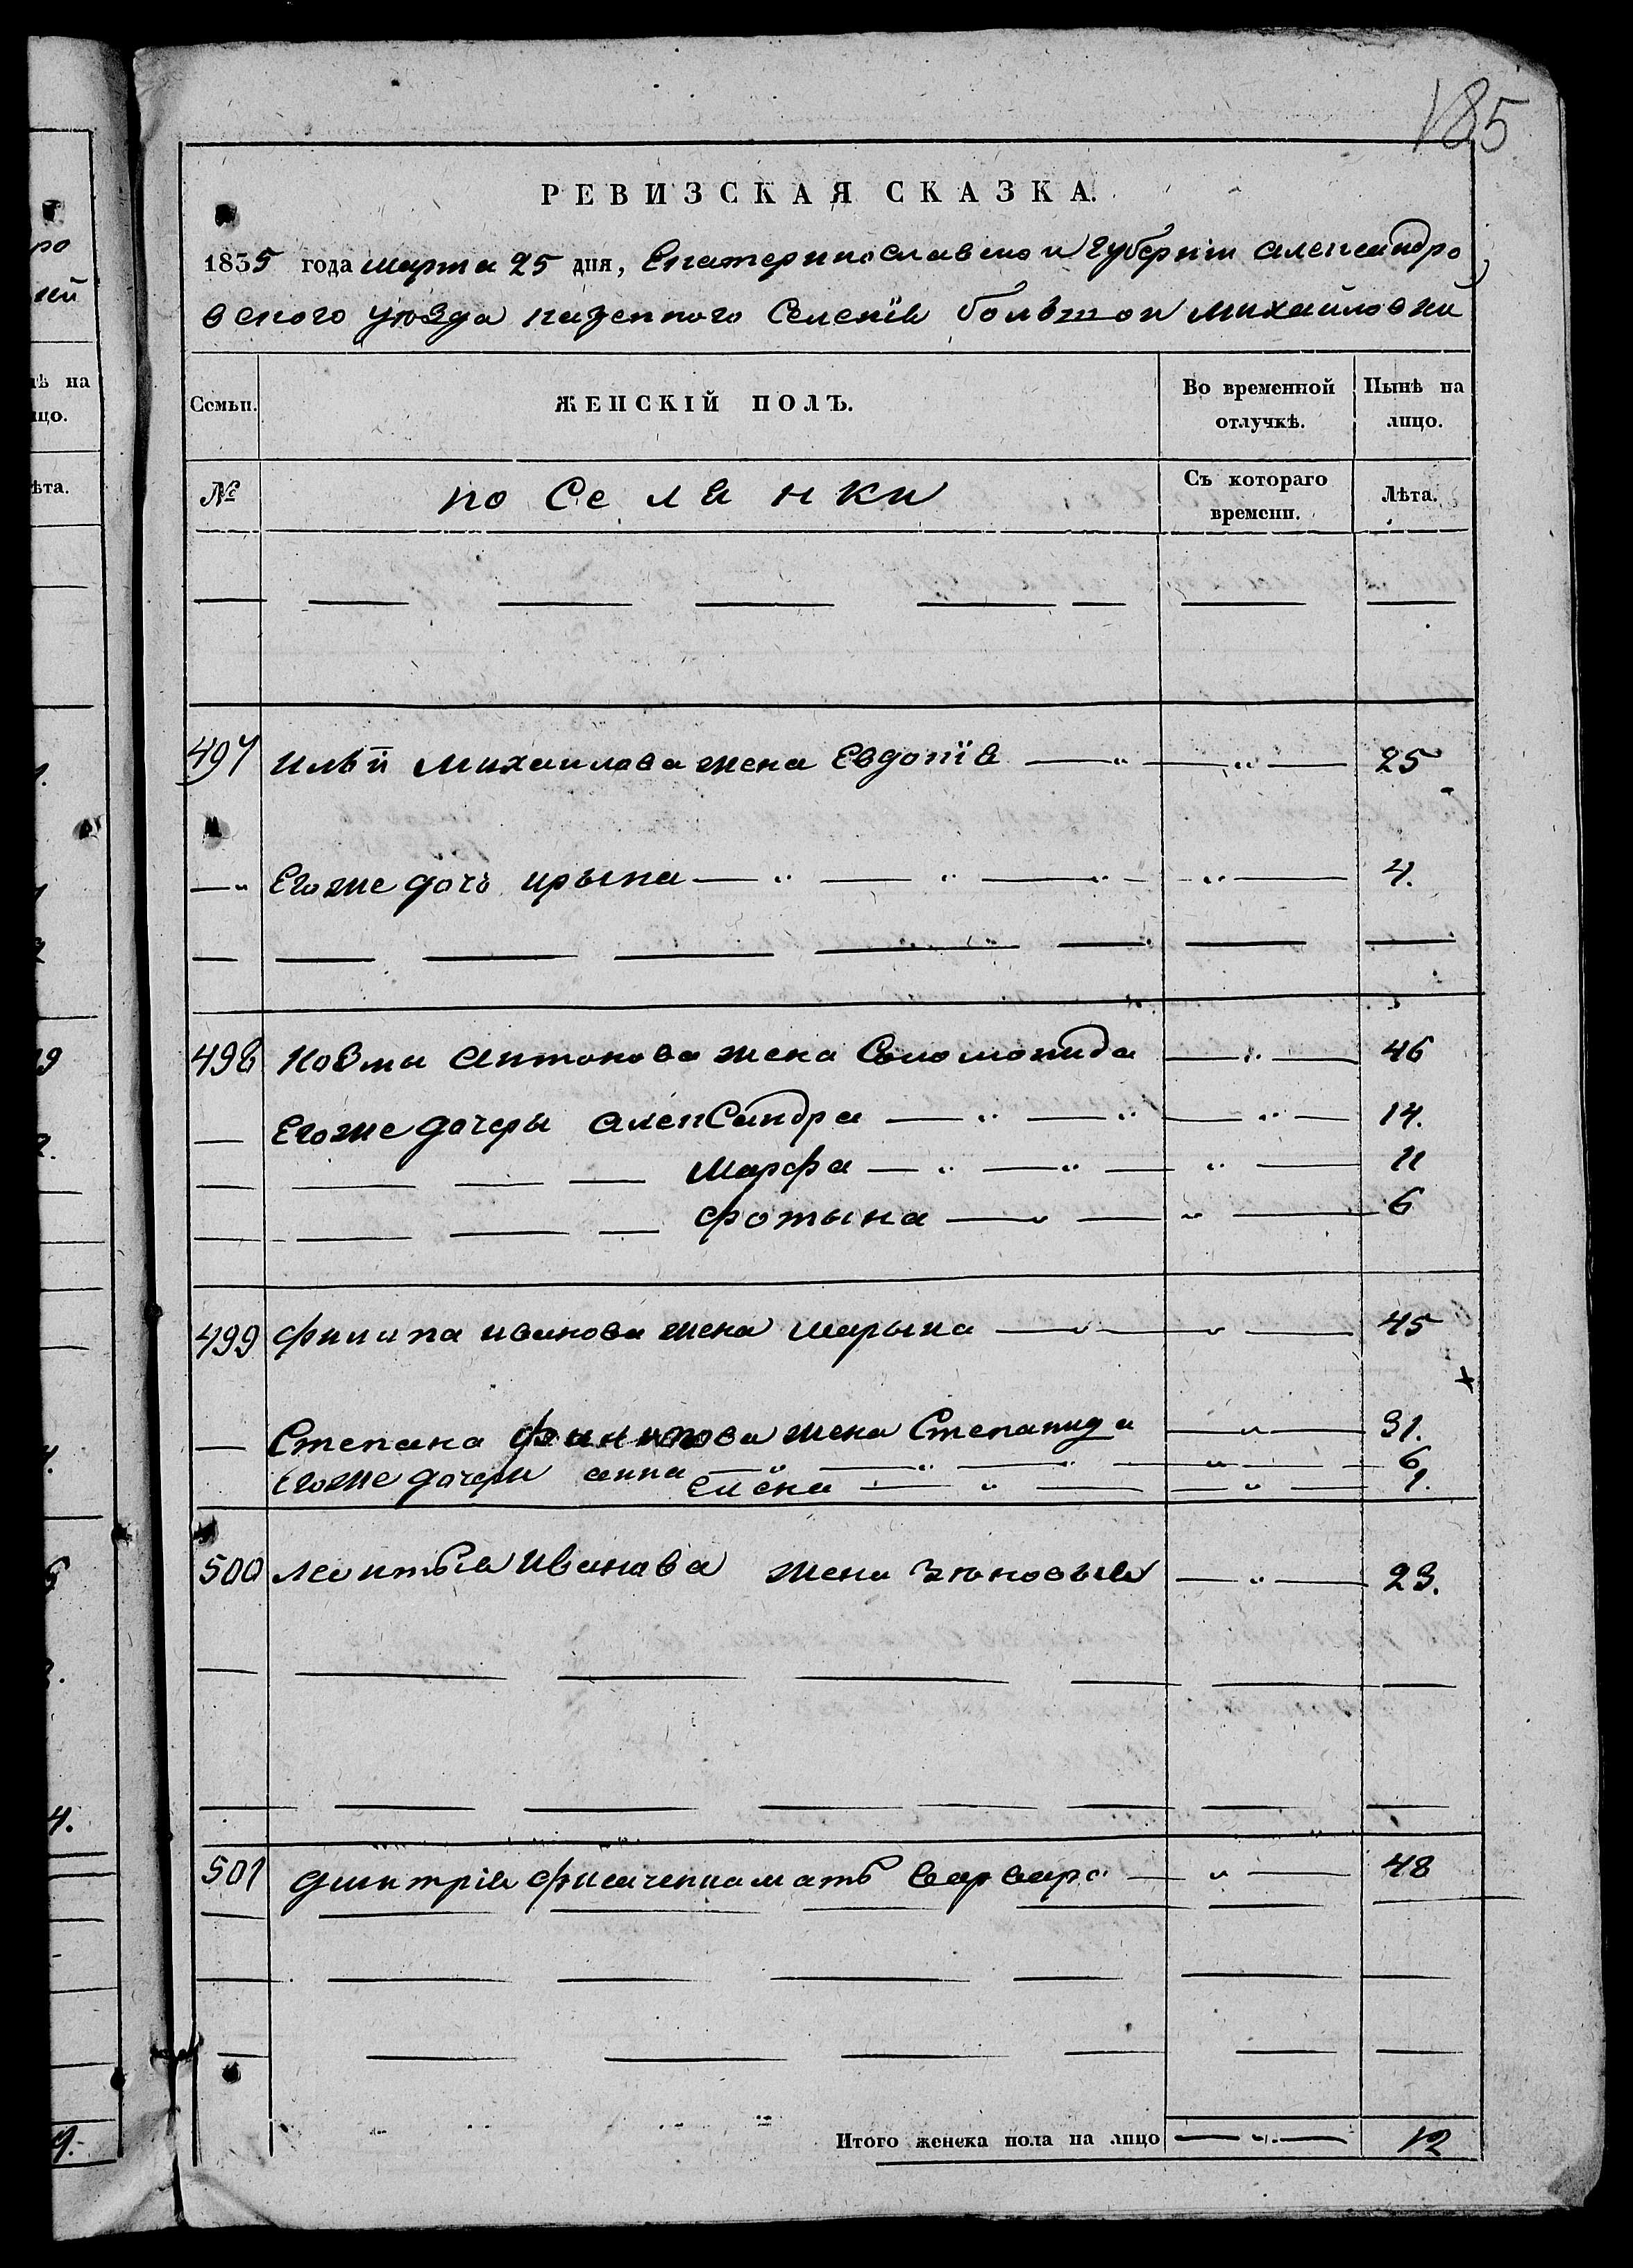 185
РЕВИЗСКАЯ СКАЗКА.
1835 года марта 25 дня, Екатеринославской Губернии Александро
вского уѣзда казенного Селенія большой михайловки
Семьи. ЖЕНСКІЙ ПОЛЪ. Во временной отлучкѣ. Нынѣ на лицо.
№ поселянки Съ котораго времени. Лѣта.
497 Ильи Михаилова жена Евдокія 25
Егоже дочь ирына 4.
498 Козмы Антонова жена Соломонида 46
Егоже дочеры Александра 14.
Марфа 11
Фотына 6
499 Филипа иванова жена марына 45
Степана Филипова жена Степанида 31.
Егоже дочери анна 6
Елена 1.
500 Леонтья Иванова жена Зѣновыя 23.
501 Дмитрія мать варвара 48
Итого женска пола на лицо 12
ро
кѣ на
ицо.
ѣта.